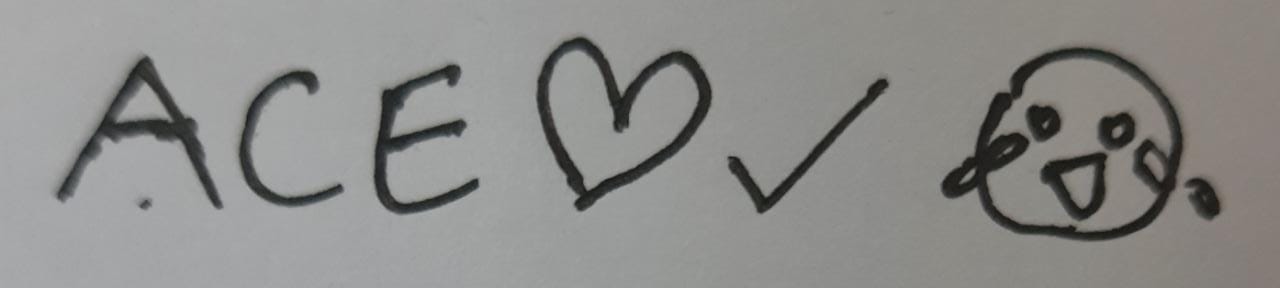 ACE♡✓😂